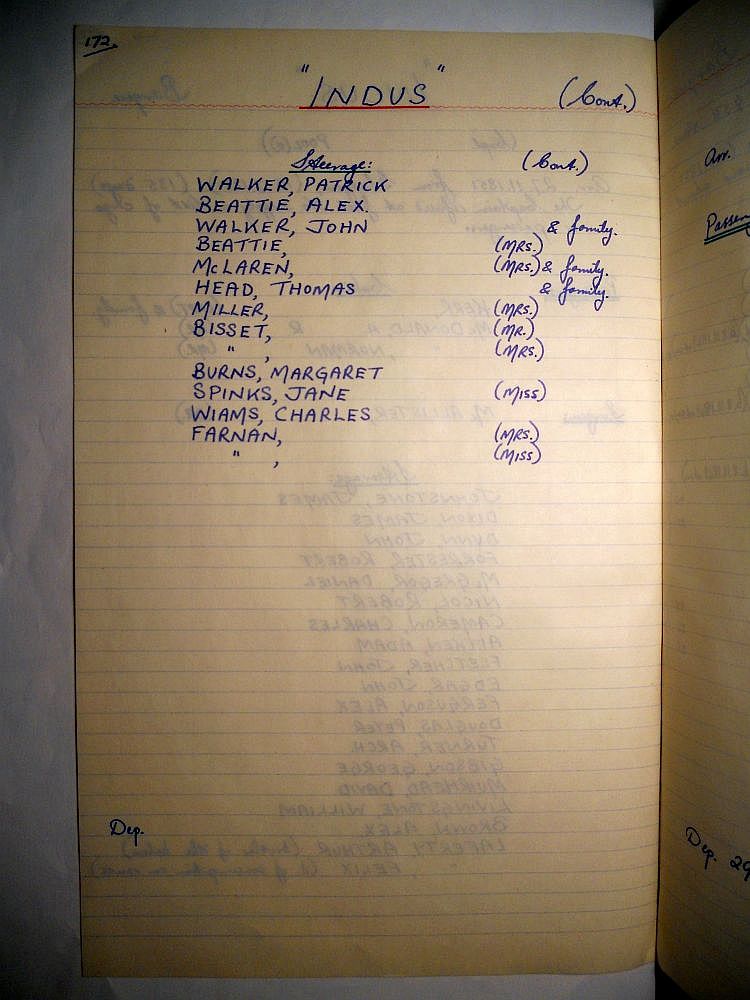 172.
"INDUS" (Cont.)
Steerage: (Cont.)
WALKER, PATRICK
BEATTIE, ALEX.
WALKER, JOHN & family.
BEATTIE, (MRS.)
McLAREN, (MRS.) & family.
HEAD, THOMAS & family.
MILLER, (MRS.)
BISSET, (MR.)
" , (MRS.)
BURNS, MARGARET
SPINKS, JANE (MISS)
WIAMS, CHARLES
FARNAN, (MRS.)
" , (MISS)
Dep.
Arr.
Passen
Dep. 29